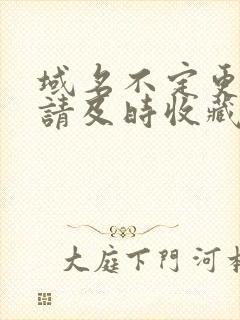 域名不定更
請及時收藏
大庭下門河